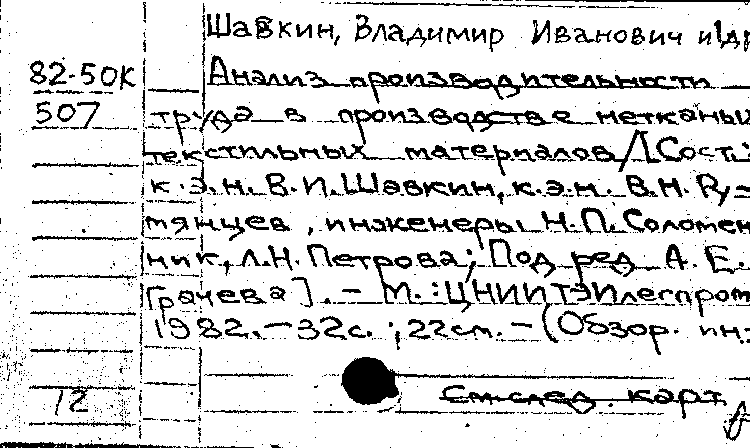 Шавкин, Владимир Иванович и др
82-50К
Анализ производительности
507
труда в производстве нетканых
текстильных материалов/[Сост.:
к.э.н. В.И.Шавкин, к.э.н. В.Н. Ру=
мянцев, инженеры Н.П. Соломен
ник, Л.Н. Петрова; Под ред А. Е.
Грачева]. - М.: ЦНИИТЭИлеспром
1982.-32с.; 22см. - (Обзор. ин=
12
См.след. карт.